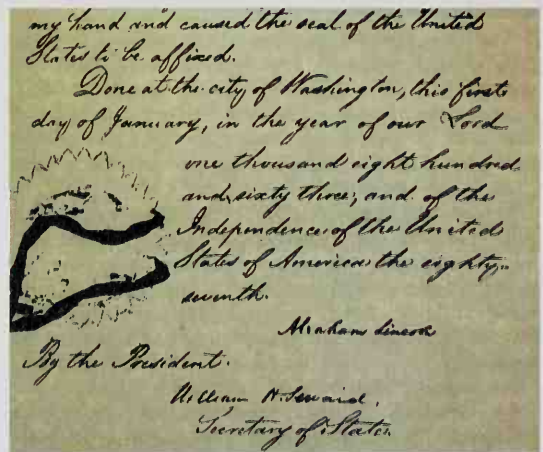 my hand and caused the seal of the United
States to be affixed.
Done at the city of Washington, this first
day of January, in the year of our Lord
one thousand eight hundred
and sixty three, and of the
Independence of the United
States of America the eighty-
seventh.
Abraham Lincoln
By the President.
William H. Seward,
Secretary of State.